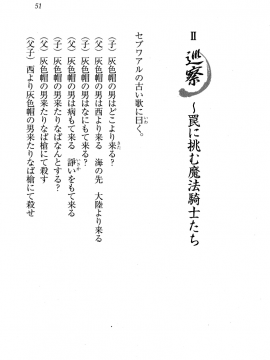 51
Ⅱ 巡察 ～罠に挑む魔法騎士たち
セブワアルの古い歌に曰く。
（子）灰色帽の男はどこより来る？
（父）灰色帽の男は西より来る　海の先　大陸より来る
（子）灰色帽の男はなにもて来る？
（父）灰色帽の男は病もて来る　諍いをもて来る
（子）灰色帽の男来たりなばなんとする？
（父）灰色帽の男来たりなば槍にて殺す
（父子）西より灰色帽の男来たりなば槍にて殺せ